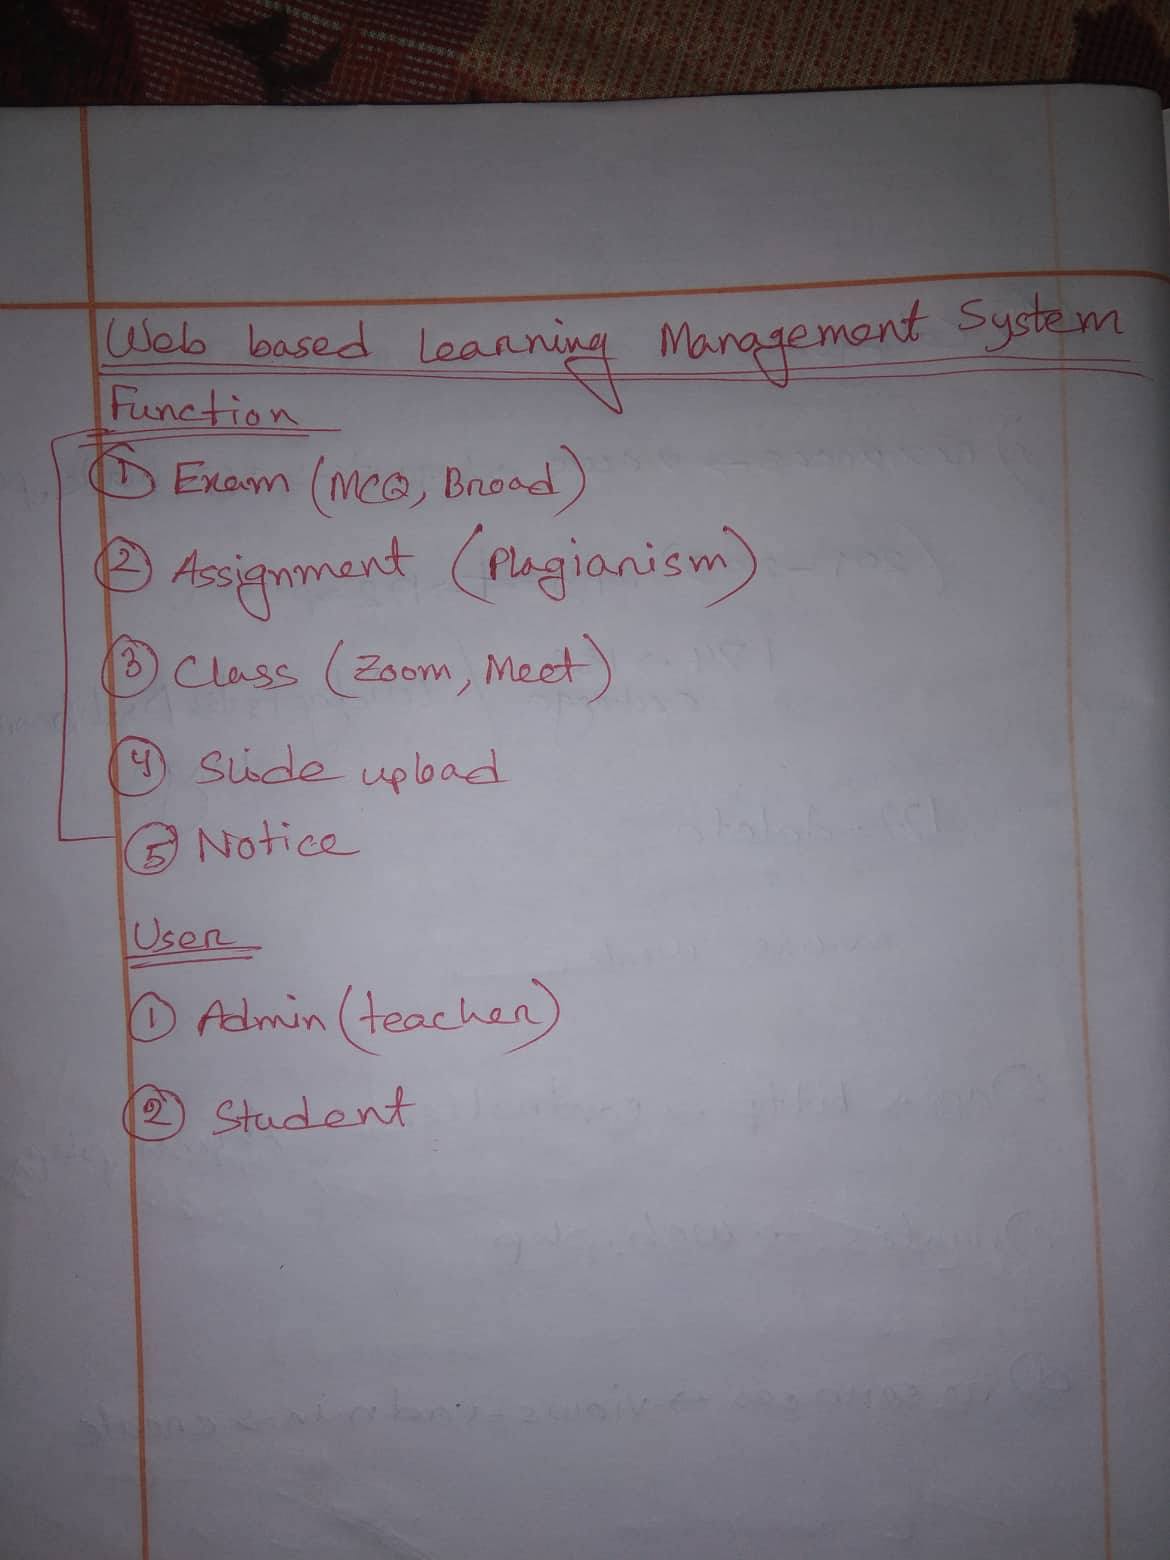 Web based Learning Management System
Function
① Exam (MCQ, Broad)
② Assignment (Plagiarism)
③ Class (Zoom, Meet)
④ Slide upload
⑤ Notice
User
① Admin (teacher)
② Student